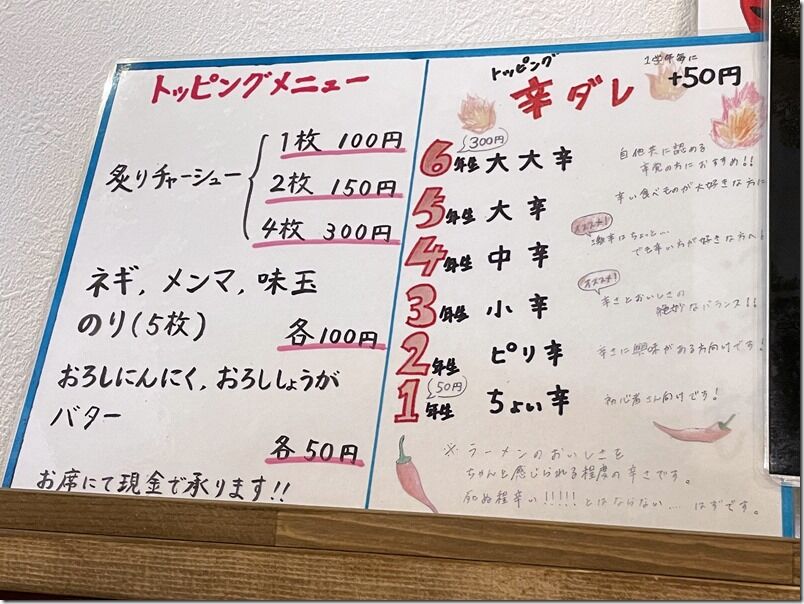 トッピングメニュー
炙りチャーシュー
1枚 100円
2枚 150円
4枚 300円
ネギ, メンマ, 味玉
のり(5枚) 各100円
おろしにんにく, おろししょうが
バター
各50円
お席にて現金で承ります!!
トッピング
辛ダレ
1学年毎に
+50円
300円
6年生 大大辛
自他共に認める
辛党の方におすすめ!!
5年生 大辛
辛い食べものが大好きな方に
4年生 中辛
オススメ!
はちょっと…
でも辛い方が好きな方へ!
3年生 小辛
オススメ!
辛さとおいしさの
絶妙なバランス!!
2年生 ピリ辛
辛さに興味がある方向けです!
50円
1年生 ちょい辛
初心者さん向けです!
※ラーメンのおいしさを
ちゃんと感じられる程度の辛さです。
死ぬ程辛い!!!!!とはならない…はずです。